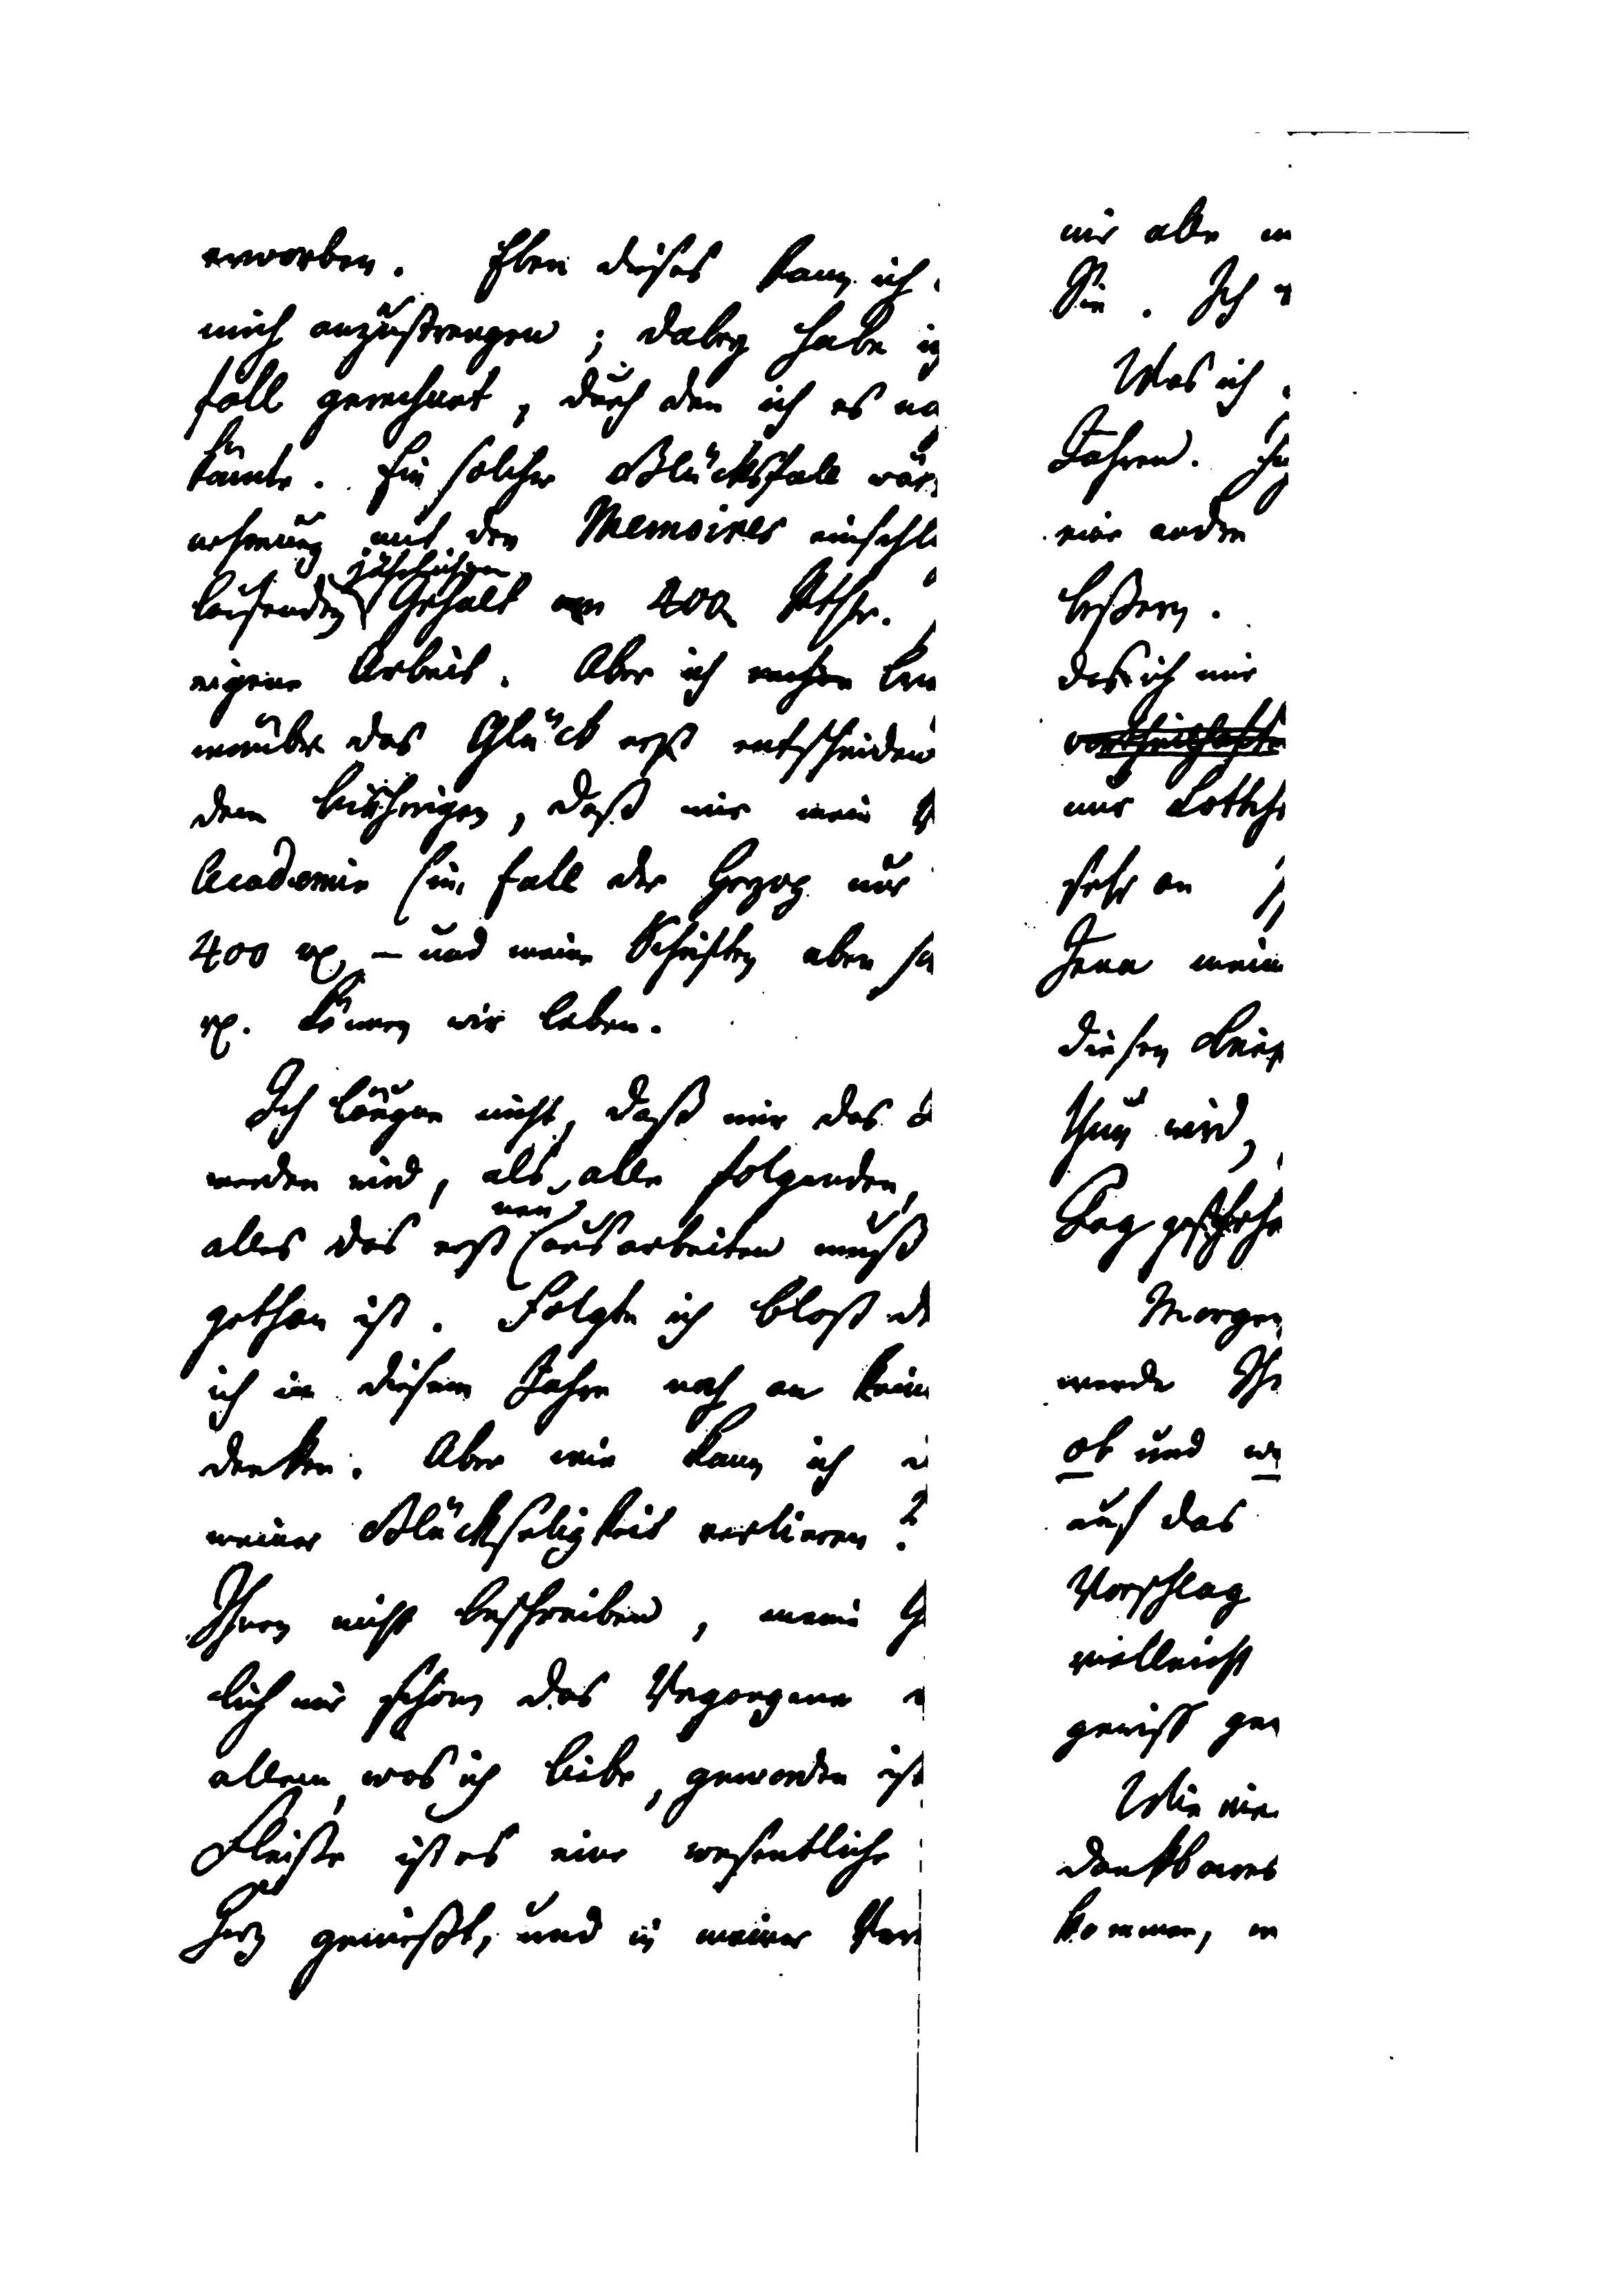 erworben. Eben dieses kann ich
mich anzustrengen; dabey habe ich
fall gerechnet, durch den ich es no
könnte. Ein solcher Glücksfall wär
nehmung mit den Memoires einschl
laufenden jährlichen Gehalt von 400 Rthlr.
eigene Arbeit. Aber ich rechne
worüber das Glück erst entscheiden
dem bisherigen, daß mir mein
Academie (im Fall der Herzog nur
400 rth. – und meine Schriften eben so
rth. können wir leben.
Ich läugne nicht, daß mir das
werden wird, als alle folgenden,
alles das erst neu ausarbeiten muß
gethan ist. Folgte ich bloß de
ich in diesem Jahre noch an kein
denken. Aber wie kann ich
meiner Glückseligkeit verlieren?
Ihnen nicht beschreiben, meine G
lich mir schon das Vergangene
allem, was ich liebe, geworden ist
Fleiße ist es eine wesentliche
Herz genießt, und in meiner Ver
mir alle
Sie. Ich
Was ich
Jahren.
eine andre
beßern.
das ich mir
vortheilhafte
mir Lottch
sehr an
Jena mein
diesen
thun wird,
Tag geschehe
Morgen
werde Ih
ob und
auf das
Vorschlag
vielleicht
gewiß ger
Wie
dankbares
kommen,